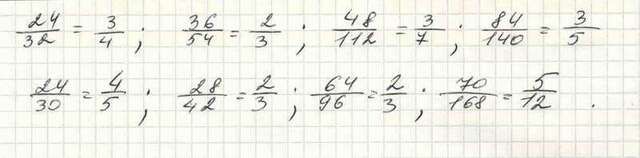 24/32 = 3/4 ; 36/54 = 2/3 ; 48/112 = 3/7 ; 84/140 = 3/5
24/30 = 4/5 ; 28/42 = 2/3 ; 64/96 = 2/3 ; 70/168 = 5/12 .